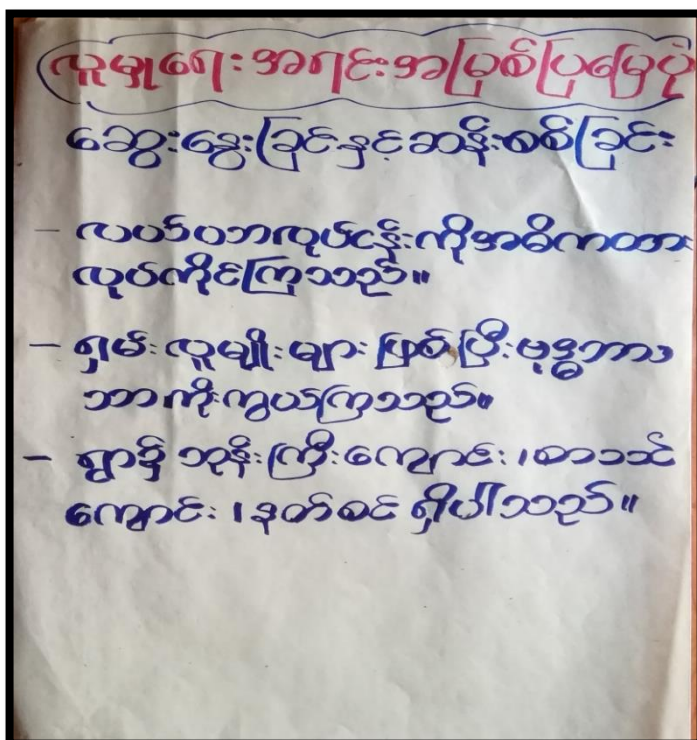 လူမှုရေးအရင်းအမြစ်ပြမြေပုံ
ဆွေးနွေးခြင်းနှင့်ဆန်းစစ်ခြင်း
- လယ်ယာလုပ်ငန်းကိုအဓိကထား
လုပ်ကိုင်ကြသည်။
- ရှမ်းလူမျိုးများ ဖြစ်ပြီးဗုဒ္ဓဘာသာ
ဘာကိုးကွယ်ကြသည်။
- ရွာ၌ ဘုန်းကြီးကျောင်း၊စာသင်
ကျောင်း၊နတ်စင် ရှိပါသည်။